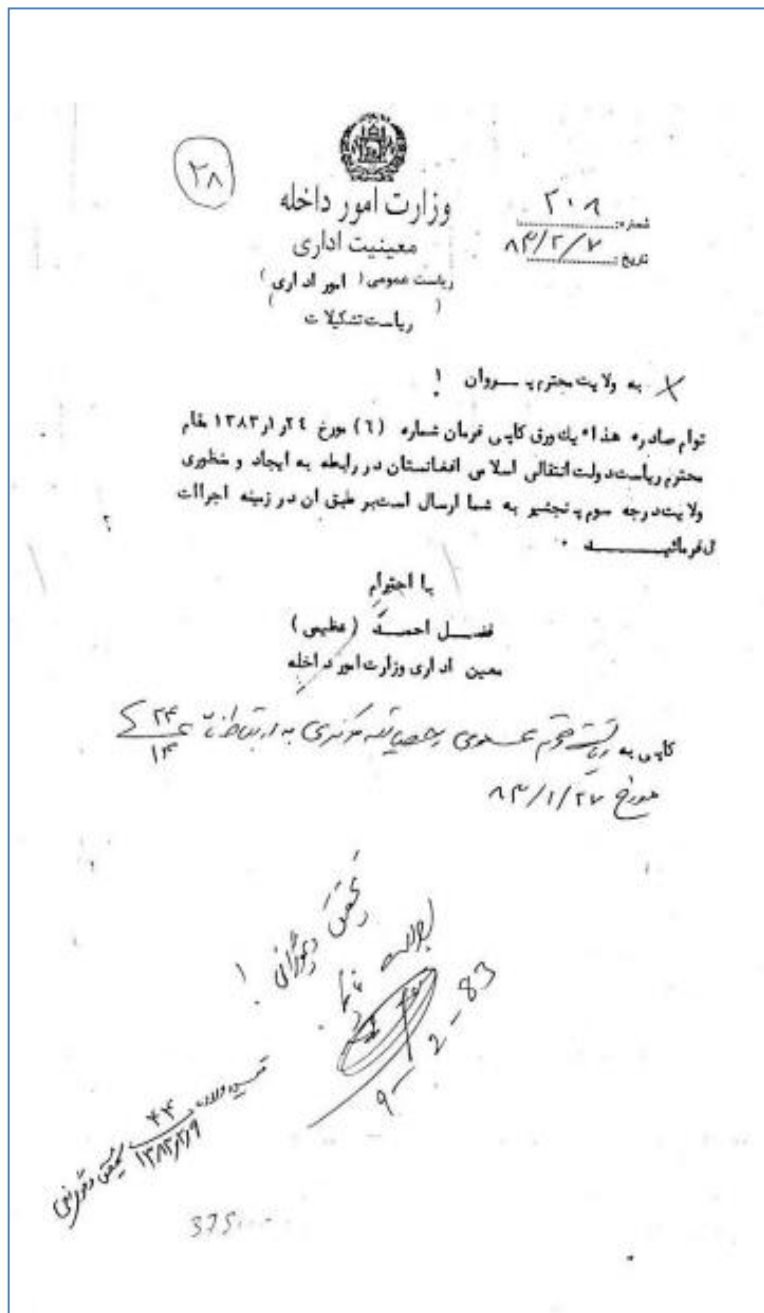 ۲۸
وزارت امور داخله
معینیت اداری
ریاست عمومی ( امور اداری )
( ریاست تشکیلات )
شماره: ۲۰۸
تاریخ: ۸۳/۲/۷
به ولایت محترم پــروان !
توام صادره هذا" یك ورق کاپی فرمان شماره (٦) مورخ ٢٤ر۱ر۱۳۸۳ مقام
محترم ریاست دولت انتقالی اسلامی افغانستان در رابطه به ایجاد و منظوری
ولایت درجه سوم پنجشیر به شما ارسال است بر طبق ان در زمینه اجراات
فرمائیـــد .
با احترام
فضــل احمــد (عظیمی)
معین اداری وزارت امور داخله
کاپی به ریاست محترم عمومی احصائیه مرکزی به ارتباط ۲۴/۱۴
مورخ ۸۳/۱/۲۷
!
9-2-83
۴۴
۱۳۸۳/۲/۹
375